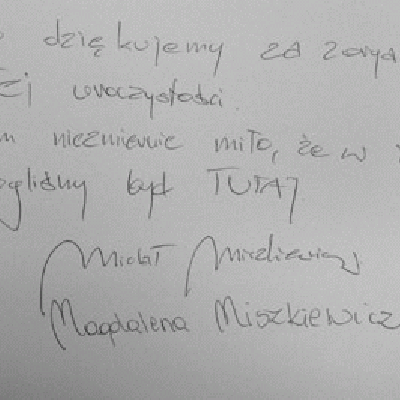 dziękujemy za
uroczystości.
niezmiernie miło, że w
być TUTAJ
Michał Miszkiewicz
Magdalena Miszkiewicz